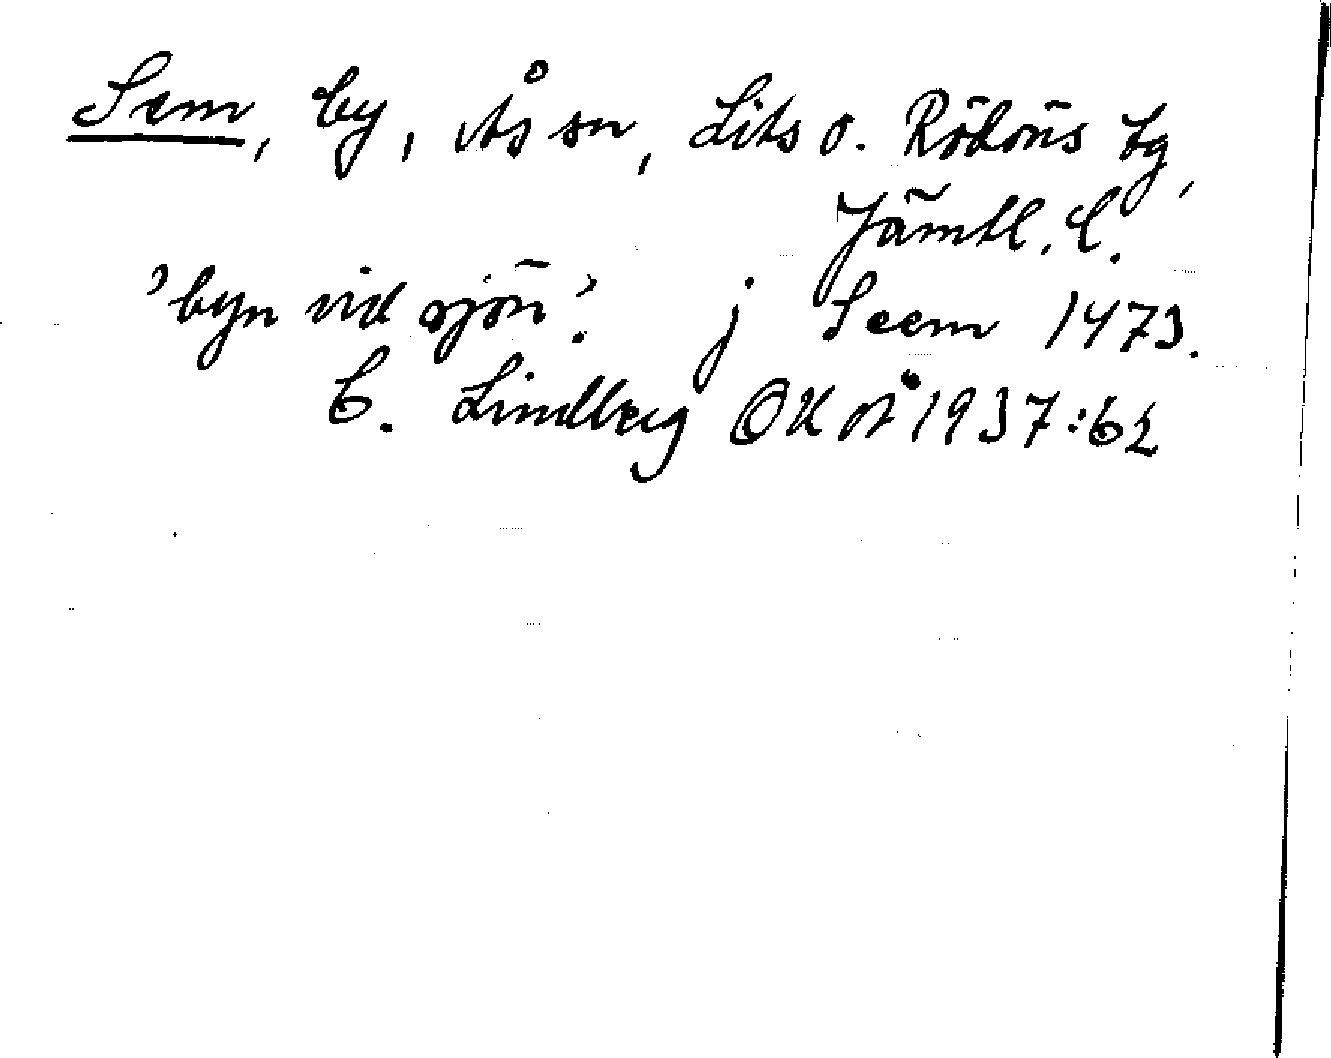 Sem, by, Ås sn, Lits o. Rödöns tg,
Jämtl. l.
'byn vid sjön'. j Seem 1473.
C. Lindberg OKÅ 1937:62